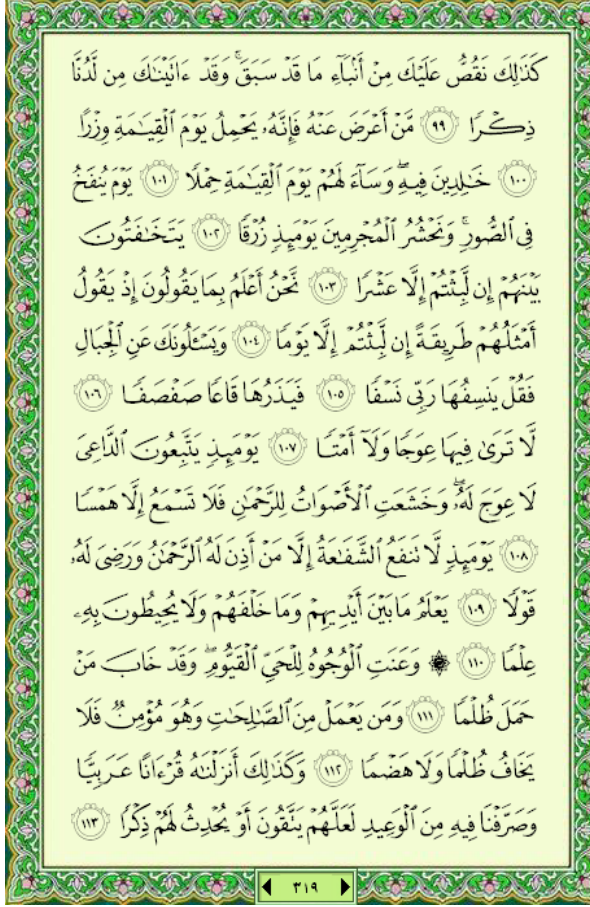 كَذَٰلِكَ نَقُصُّ عَلَيْكَ مِنْ أَنۢبَآءِ مَا قَدْ سَبَقَ ۚ وَقَدْ ءَاتَيْنَـٰكَ مِن لَّدُنَّا
ذِكْرًا ٩٩ مَّنْ أَعْرَضَ عَنْهُ فَإِنَّهُۥ يَحْمِلُ يَوْمَ ٱلْقِيَـٰمَةِ وِزْرًا
١٠٠ خَـٰلِدِينَ فِيهِ ۖ وَسَآءَ لَهُمْ يَوْمَ ٱلْقِيَـٰمَةِ حِمْلًا ١٠١ يَوْمَ يُنفَخُ
فِى ٱلصُّورِ ۚ وَنَحْشُرُ ٱلْمُجْرِمِينَ يَوْمَئِذٍ زُرْقًا ١٠٢ يَتَخَـٰفَتُونَ
بَيْنَهُمْ إِن لَّبِثْتُمْ إِلَّا عَشْرًا ١٠٣ نَّحْنُ أَعْلَمُ بِمَا يَقُولُونَ إِذْ يَقُولُ
أَمْثَلُهُمْ طَرِيقَةً إِن لَّبِثْتُمْ إِلَّا يَوْمًا ١٠٤ وَيَسْـَٔلُونَكَ عَنِ ٱلْجِبَالِ
فَقُلْ يَنسِفُهَا رَبِّى نَسْفًا ١٠٥ فَيَذَرُهَا قَاعًا صَفْصَفًا ١٠٦
لَّا تَرَىٰ فِيهَا عِوَجًا وَلَآ أَمْتًا ١٠٧ يَوْمَئِذٍ يَتَّبِعُونَ ٱلدَّاعِىَ
لَا عِوَجَ لَهُۥ ۖ وَخَشَعَتِ ٱلْأَصْوَاتُ لِلرَّحْمَـٰنِ فَلَا تَسْمَعُ إِلَّا هَمْسًا
١٠٨ يَوْمَئِذٍ لَّا تَنفَعُ ٱلشَّفَـٰعَةُ إِلَّا مَنْ أَذِنَ لَهُ ٱلرَّحْمَـٰنُ وَرَضِىَ لَهُۥ
قَوْلًا ١٠٩ يَعْلَمُ مَا بَيْنَ أَيْدِيهِمْ وَمَا خَلْفَهُمْ وَلَا يُحِيطُونَ بِهِۦ
عِلْمًا ١١٠ ۞ وَعَنَتِ ٱلْوُجُوهُ لِلْحَىِّ ٱلْقَيُّومِ ۖ وَقَدْ خَابَ مَنْ
حَمَلَ ظُلْمًا ١١١ وَمَن يَعْمَلْ مِنَ ٱلصَّـٰلِحَـٰتِ وَهُوَ مُؤْمِنٌ فَلَا
يَخَافُ ظُلْمًا وَلَا هَضْمًا ١١٢ وَكَذَٰلِكَ أَنزَلْنَـٰهُ قُرْءَانًا عَرَبِيًّا
وَصَرَّفْنَا فِيهِ مِنَ ٱلْوَعِيدِ لَعَلَّهُمْ يَتَّقُونَ أَوْ يُحْدِثُ لَهُمْ ذِكْرًا ١١٣
٣١٩